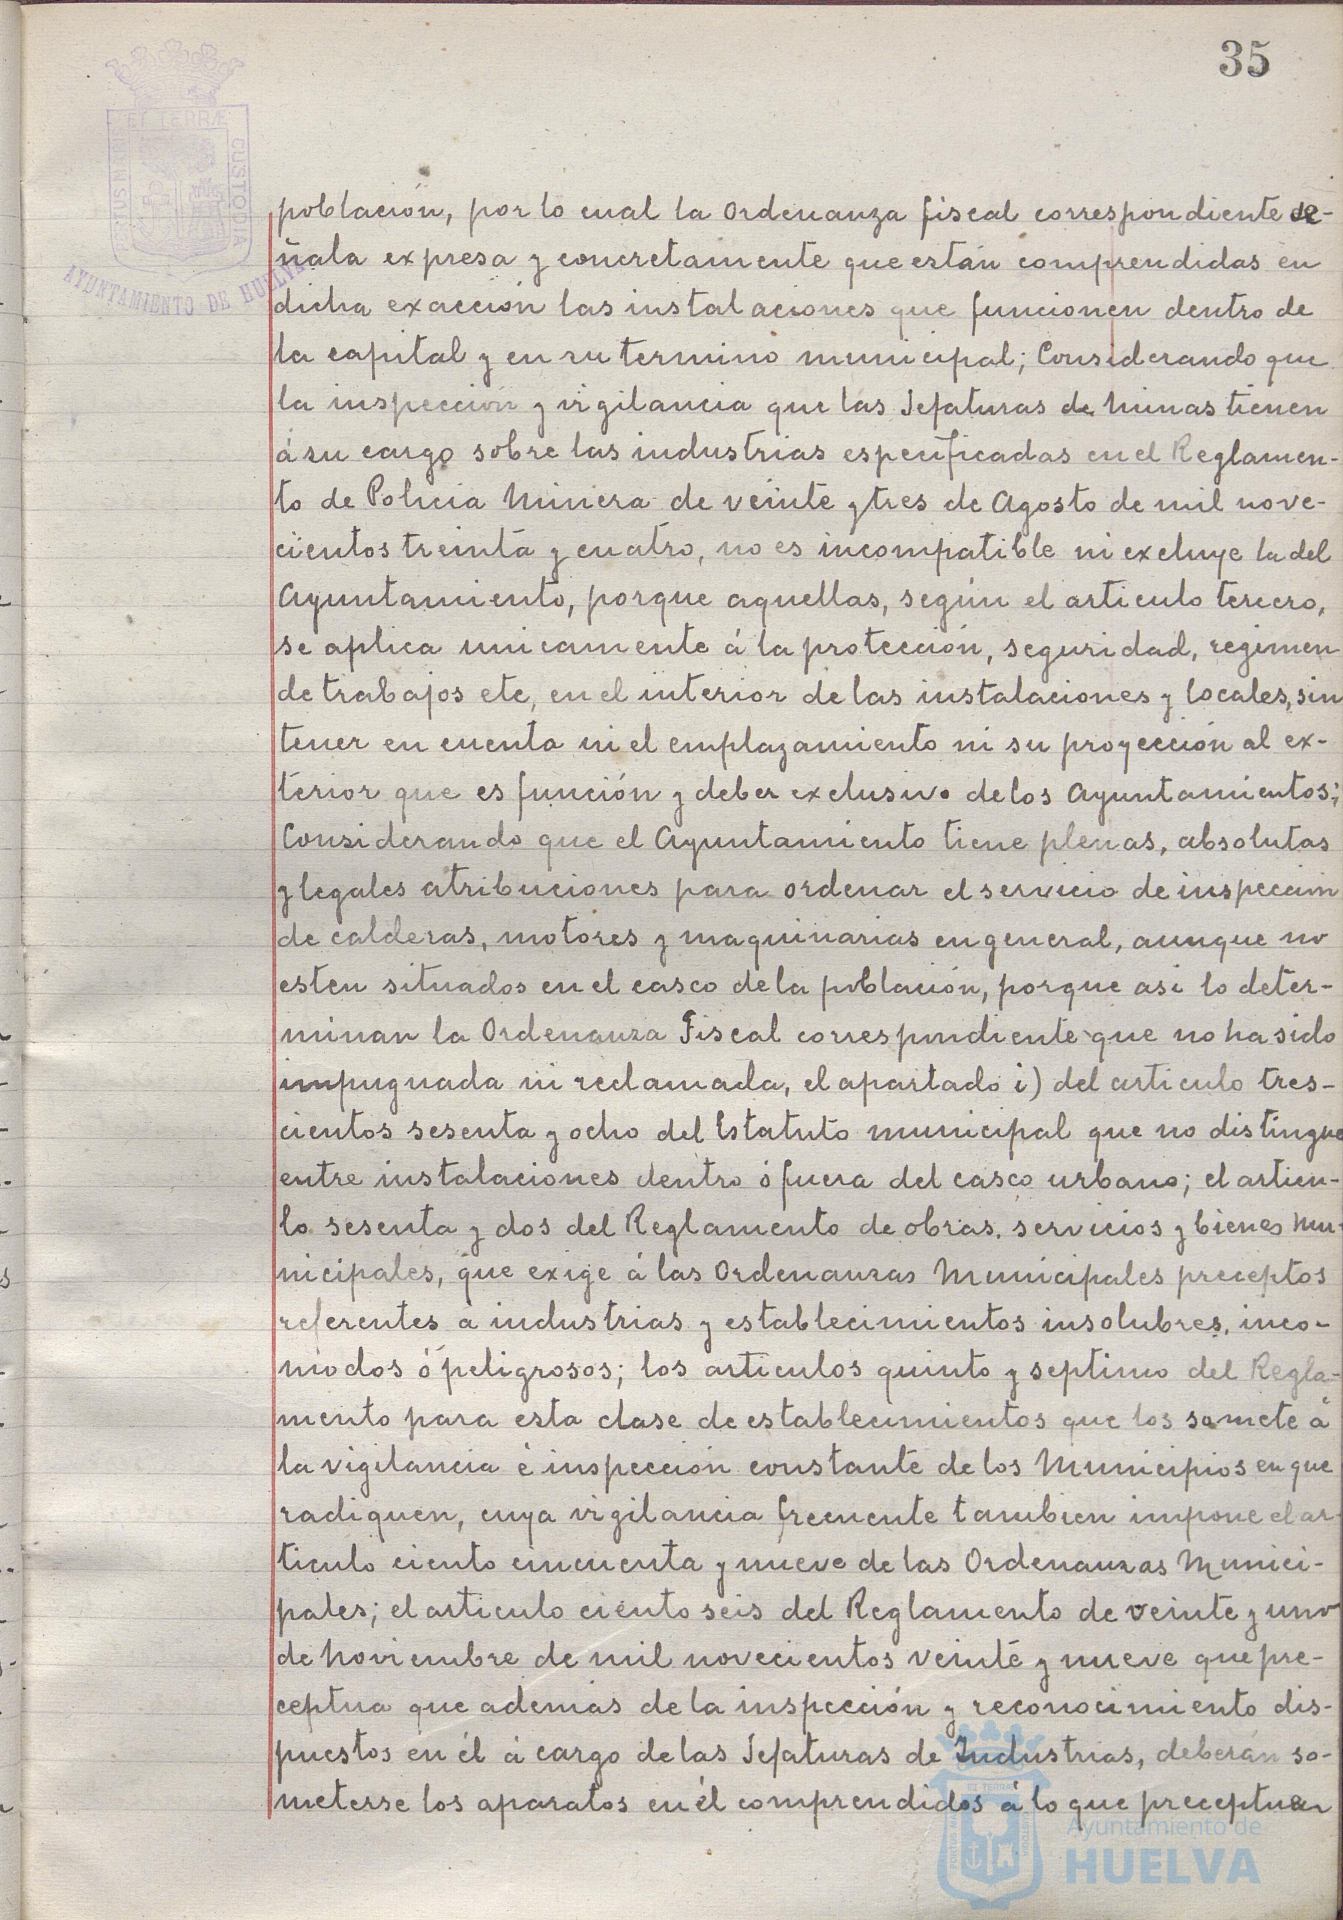 35
PORTUS MARIS ET TERRÆ CUSTODIA
AYUNTAMIENTO DE HUELVA
población, por lo cual la Ordenanza fiscal correspondiente se-
ñala expresa y concretamente que están comprendidas en
dicha exacción las instalaciones que funcionen dentro de
la capital y en su termino municipal; Considerando que
la inspección y vigilancia que las Jefaturas de Minas tienen
á su cargo sobre las industrias especificadas en el Reglamen-
to de Policia Minera de veinte y tres de Agosto de mil nove-
cientos treinta y cuatro, no es incompatible ni excluye la del
Ayuntamiento, porque aquellas, según el articulo tercero,
se aplica unicamente á la protección, seguridad, regimen
de trabajos etc, en el interior de las instalaciones y locales, sin
tener en cuenta ni el emplazamiento ni su proyección al ex-
terior que es función y deber exclusivo de los Ayuntamientos;
Considerando que el Ayuntamiento tiene plenas, absolutas
y legales atribuciones para ordenar el servicio de inspección
de calderas, motores y maquinarias en general, aunque no
esten situados en el casco de la población, porque asi lo deter-
minan la Ordenanza Fiscal correspondiente que no ha sido
impugnada ni reclamada, el apartado i) del articulo tres-
cientos sesenta y ocho del Estatuto municipal que no distingue
entre instalaciones dentro ó fuera del casco urbano; el articu-
lo sesenta y dos del Reglamento de obras, servicios y bienes mu-
nicipales, que exige á las Ordenanzas Municipales preceptos
referentes á industrias y establecimientos insolubres, inco-
modos ó peligrosos; los articulos quinto y septimo del Regla-
mento para esta clase de establecimientos que los somete á
la vigilancia é inspección constante de los Municipios en que
radiquen, cuya vigilancia frecuente tambien impone el ar-
ticulo ciento cincuenta y nueve de las Ordenanzas Munici-
pales; el articulo ciento seis del Reglamento de veinte y uno
de Noviembre de mil novecientos veinte y nueve que pre-
ceptua que además de la inspección y reconocimiento dis-
puestos en él á cargo de las Jefaturas de Industrias, deberán so-
meterse los aparatos en él comprendidos á lo que preceptuan
Ayuntamiento de
HUELVA